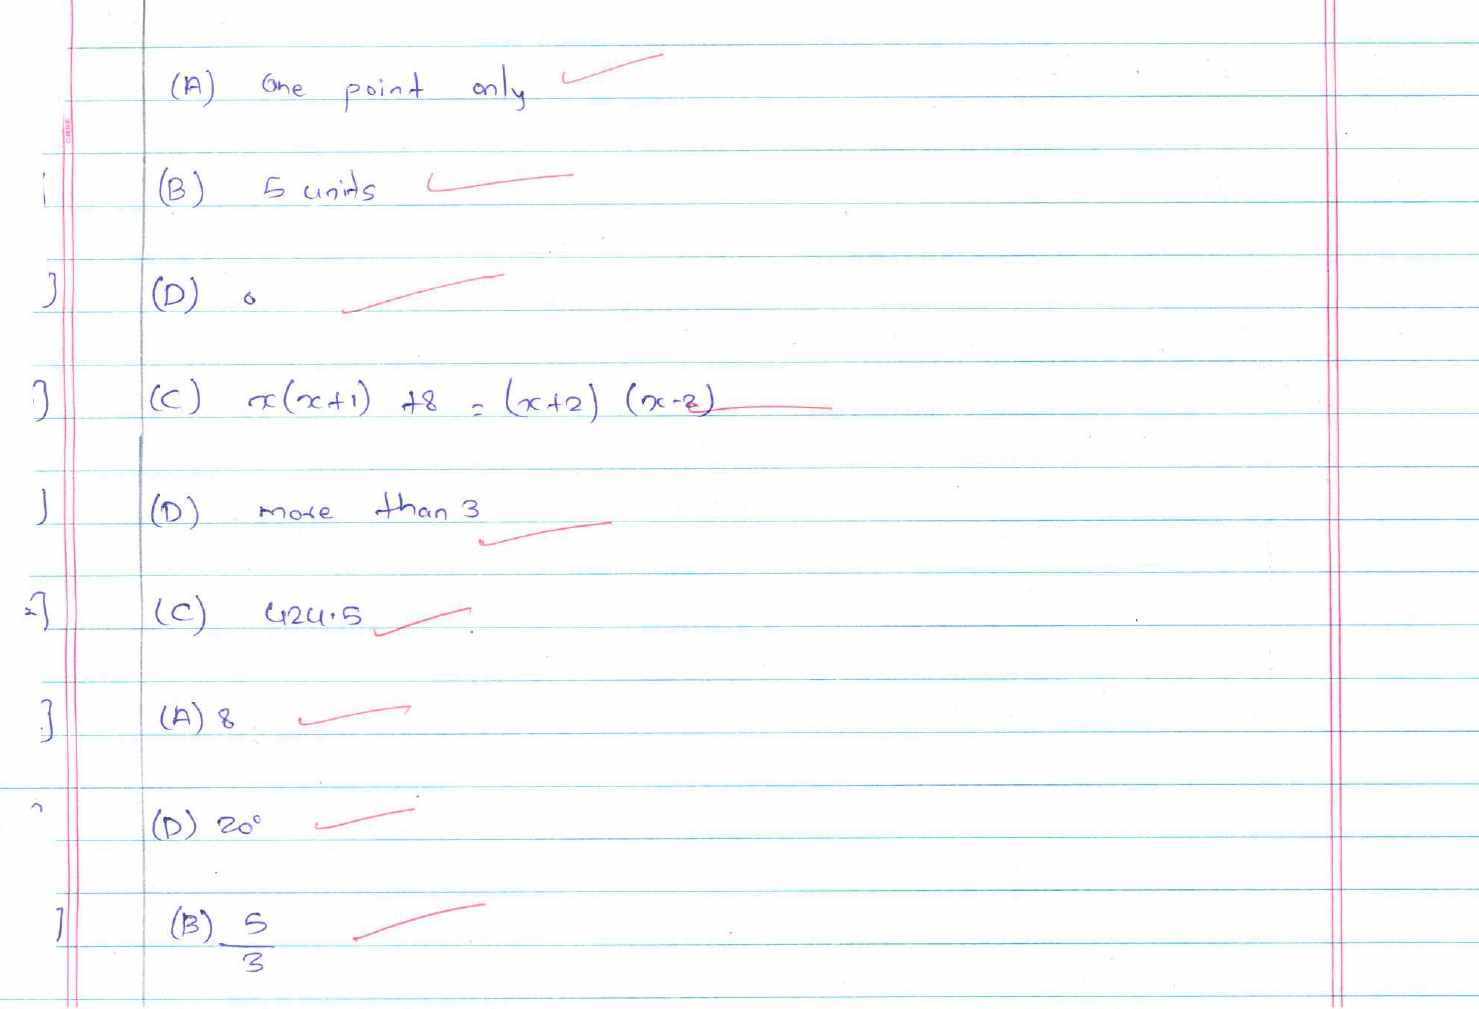 (A) One point only
(B) 5 units
(D) 0
(C) x(x+1) +8 = (x+2) (x-2)
(D) more than 3
(C) 424.5
(A) 8
(D) 20°
(B) 5/3